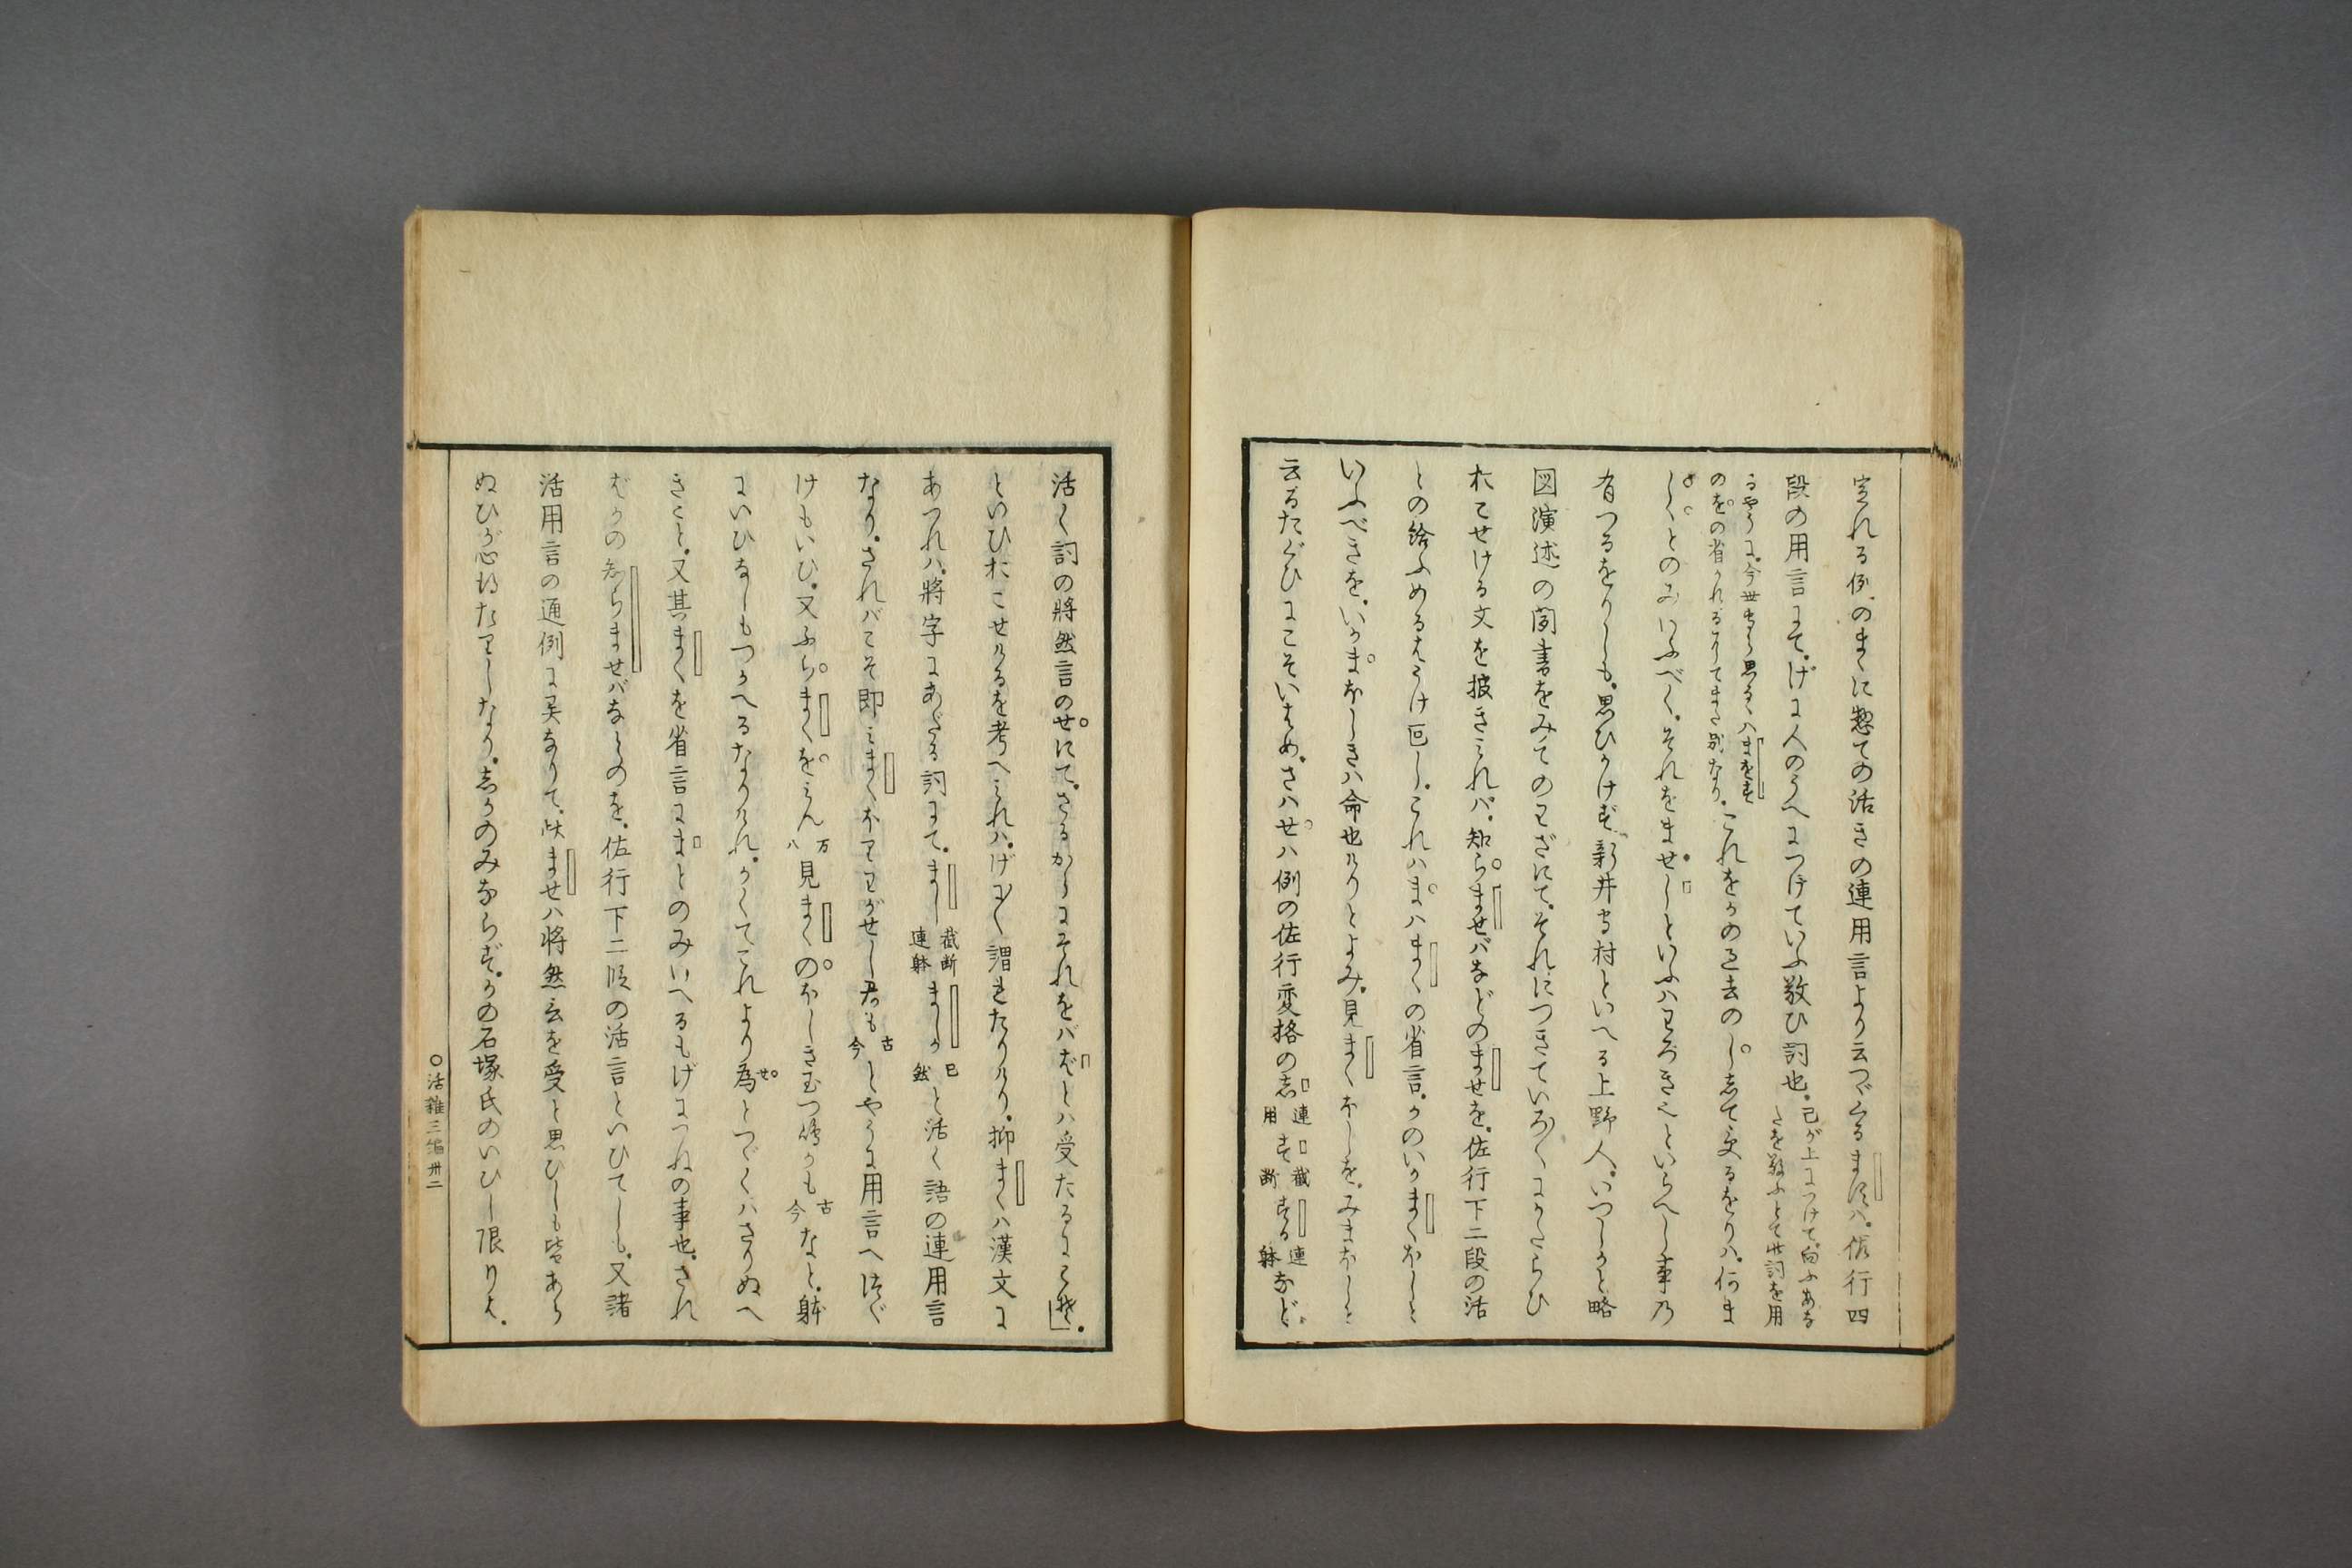 定れる例のまゝに惣ての活きの連用言より云つゞくるますハ。佐行四
段の用言にて。げに人のうへにつけていふ敬ひ詞也。
己が上につけて。向ふある
を敬ふとて此詞を用
るやうに。今世書く思るハまをす
のをの省かれるにてまた別なり。
これをかの過去のし志て受るをりハ。何ま
しゝとのみいふべく。それをませしといふハわろきことといらへし事乃
有つるをりしも。思ひかけず新井守村といへる上野人。いつしかと略
図演述の聞書をみてのわざにて。それにつきていろ〳〵にかたらひ
おこせける文を披きみれバ。知らませバなどのませを。佐行下二段の活
との給ふめるはうけ回し。これハまハまくの省言。かのいかまくほしと
いふべきを。いかまほしきハ命也けりとよみ。見まくほしを。みまほしと
云るたぐひにこそいはめ。さハせハ例の佐行変格の志
連用
す
截断
する
連躰
など。
活く詞の将然言のせにて。さるからにそれをバばとハ受たるにこそ」。
といひおこせけるを考へみれハ。げによく謂きたりけり。抑まくハ漢文に
あつれハ。將字にあたる詞にて。まし
截断
連躰
ましか
已然
と活く語の連用言
なり。されバこそ即みまくほりわがせし君も
古今
とやうに用言へつゞ
けもいひ。又ふらまくをみん
万八
見まくのほしき玉つ嶋かも
古今
なと。躰
にいひなしもつかへるなりけれ。かくてこれより為とつゞくハさりぬへ
きこと。又其まくを省言にまとのみいへるもげにつねの事也。され
ばかの知らませバなとのを。佐行下二段の活言といひてしも。又諸
活用言の通例に異なりて。此ませハ将然言を受と思ひしも皆あら
ぬひが心得たりしなり。志かのみならず。かの石塚氏のいひし限りは。
○活雑三編卅二